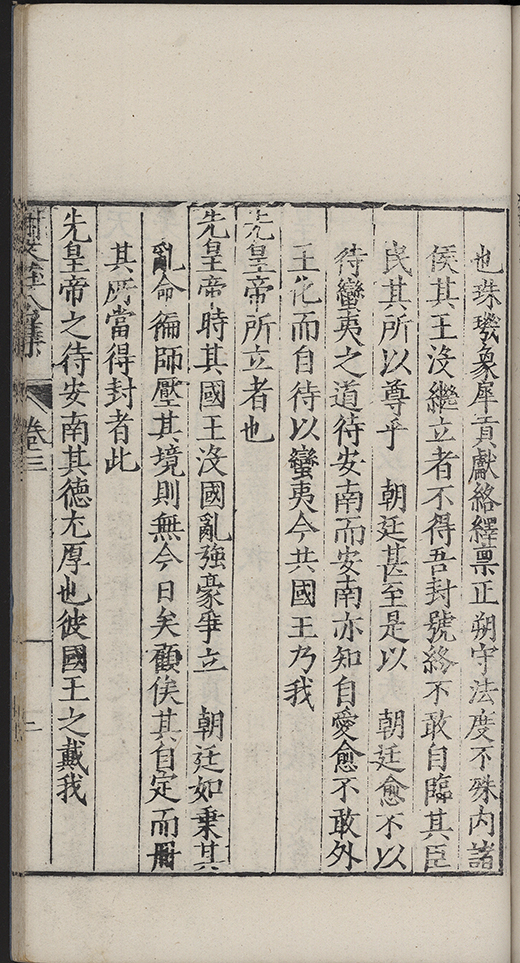 也珠璣象犀貢獻絡繹禀正朔守法度不殊內諸
侯其王沒繼立者不得吾封號終不敢自臨其臣
民其所以尊乎 朝廷甚至是以 朝廷愈不以
待蠻夷之道待安南而安南亦知自愛愈不敢外
王化而自待以蠻夷今其國王乃我
先皇帝所立者也
先皇帝時其國王沒國亂強豪爭立 朝廷如乗其
亂命徧師壓其境則無今日矣顧俟其自定而冊
其所當得封者此
先皇帝之待安南其德尤厚也彼國王之戴我
卷三 二